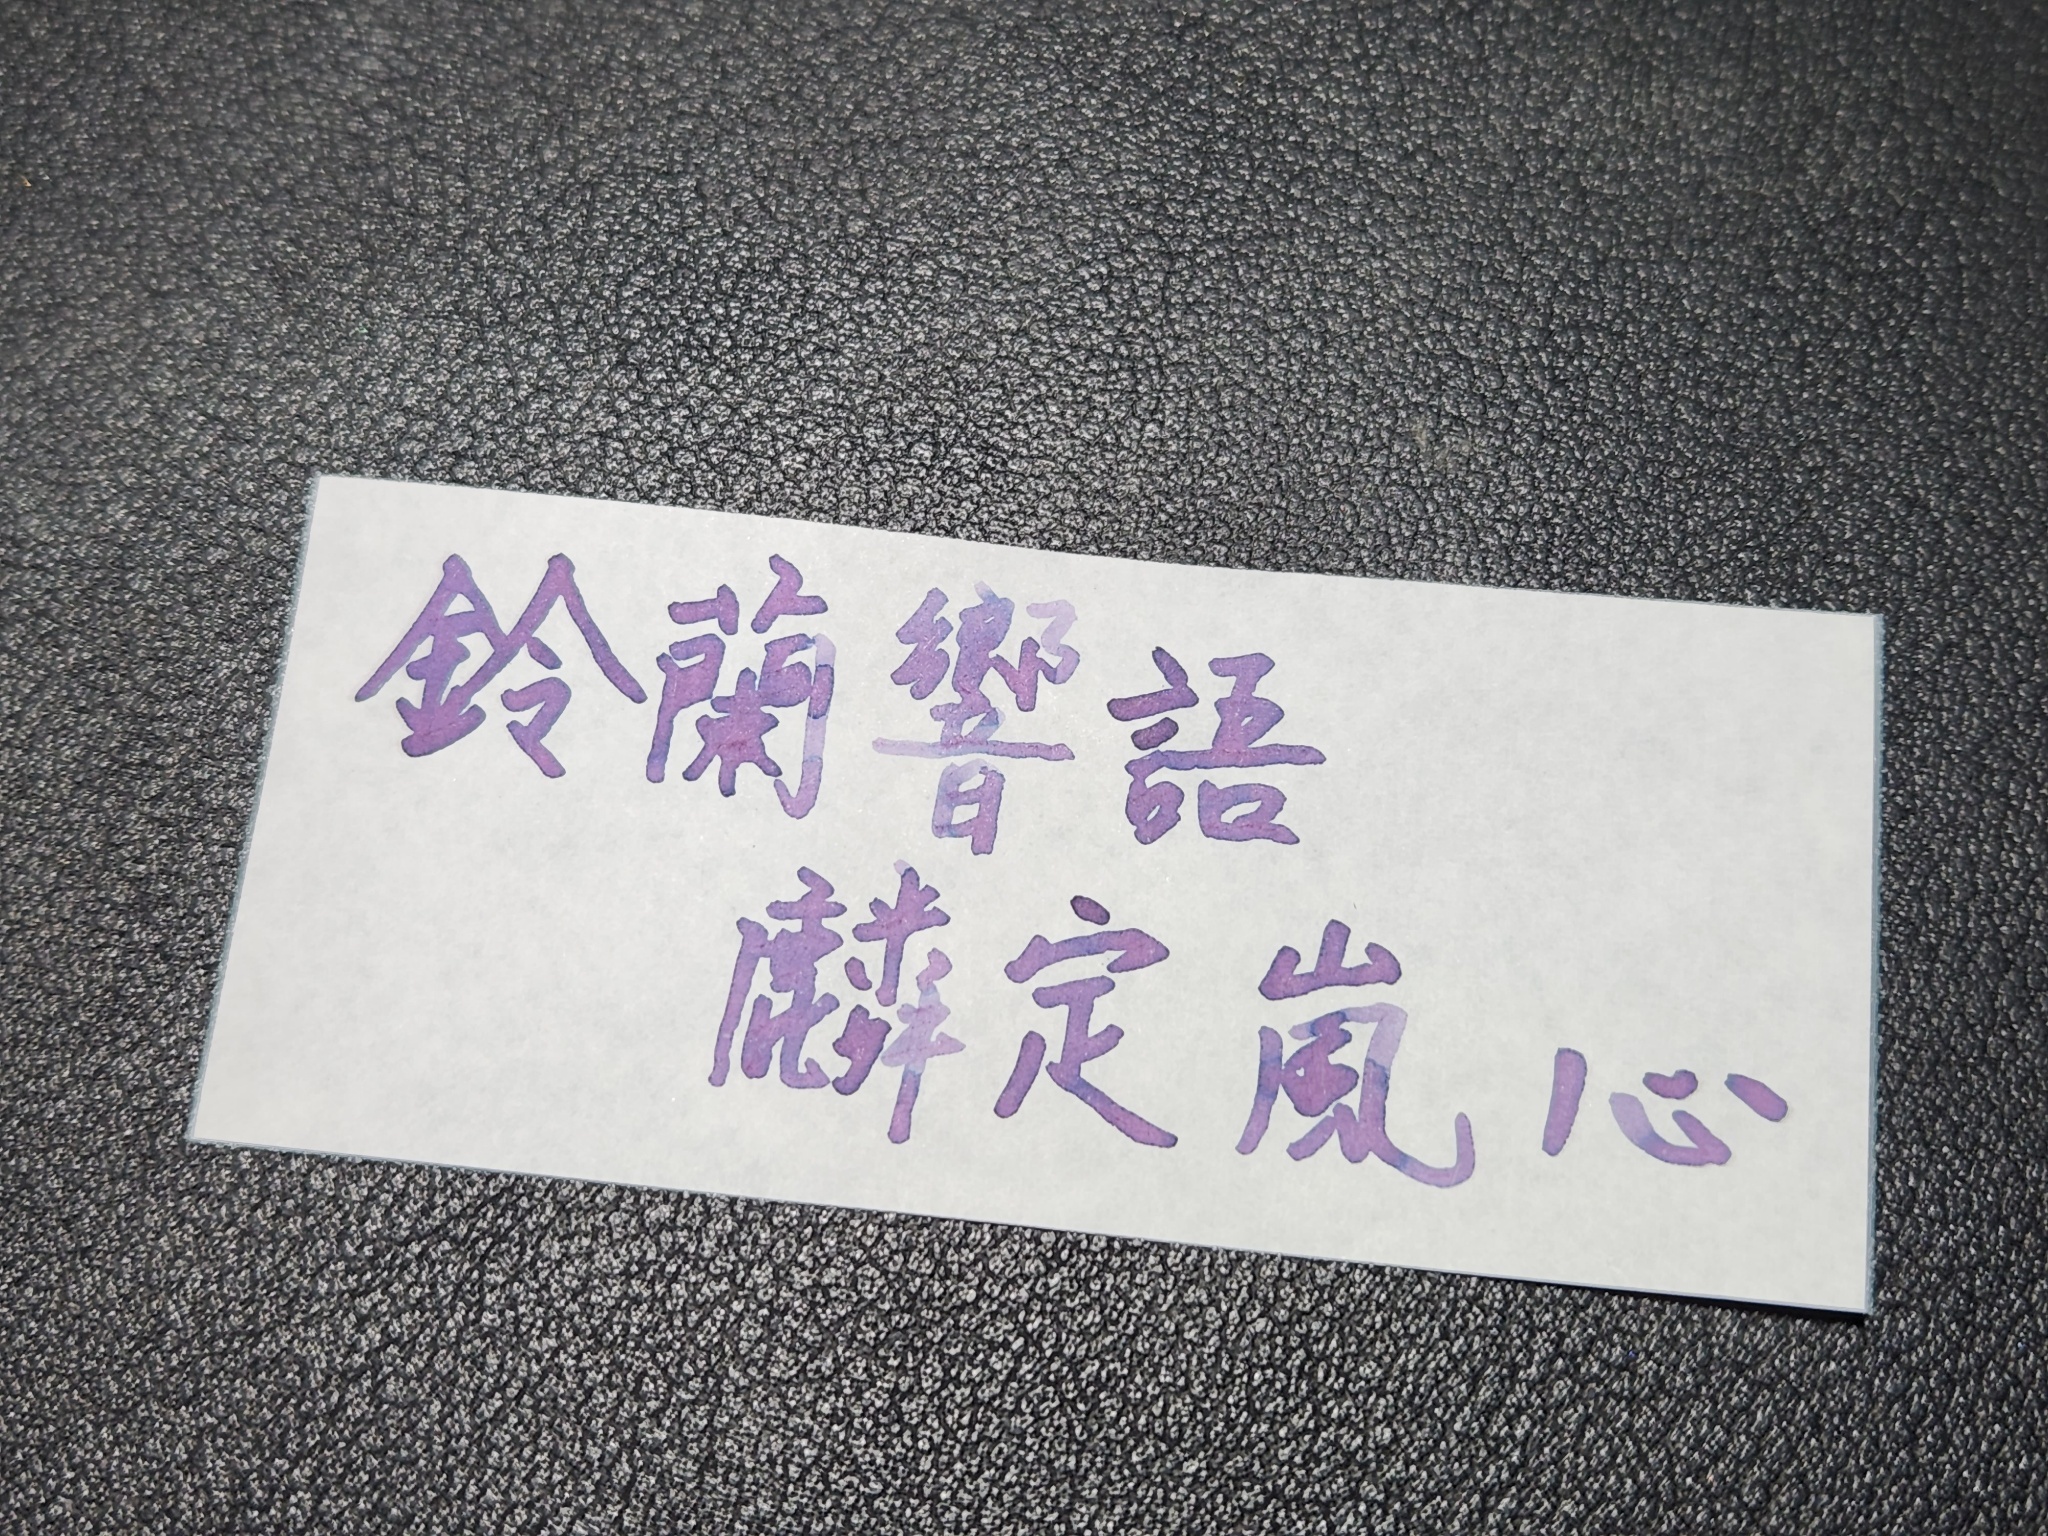 鈴蘭響語
麟定嵐心